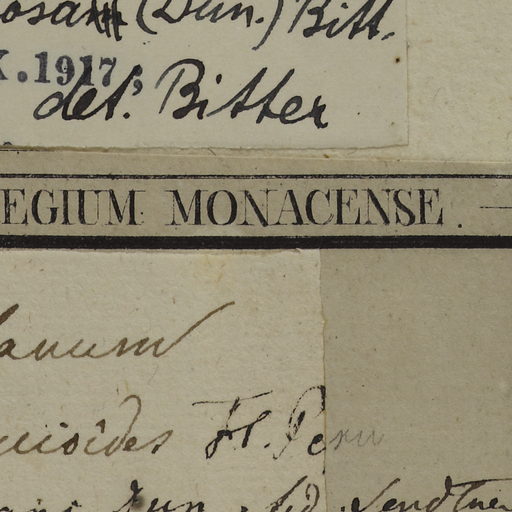 (Dun.) Bitt.
X.1917,
det. Bitter
EGIUM MONACENSE.
lanum
uioides Fl. Peru
Dun.